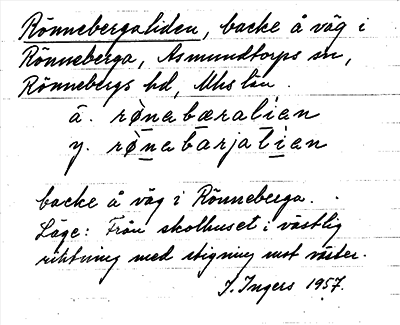 Rönnebergaliden, backe å väg i
Rönneberga, Asmundtorps sn,
Rönnebergs hd, Mhs län.
ä. rø̀nabæralian
y. rø̀nabarjalian
backe å väg i Rönneberga.
Läge: Från skolhuset i västlig
riktning med stigning mot väster.
I. Ingers 1957.